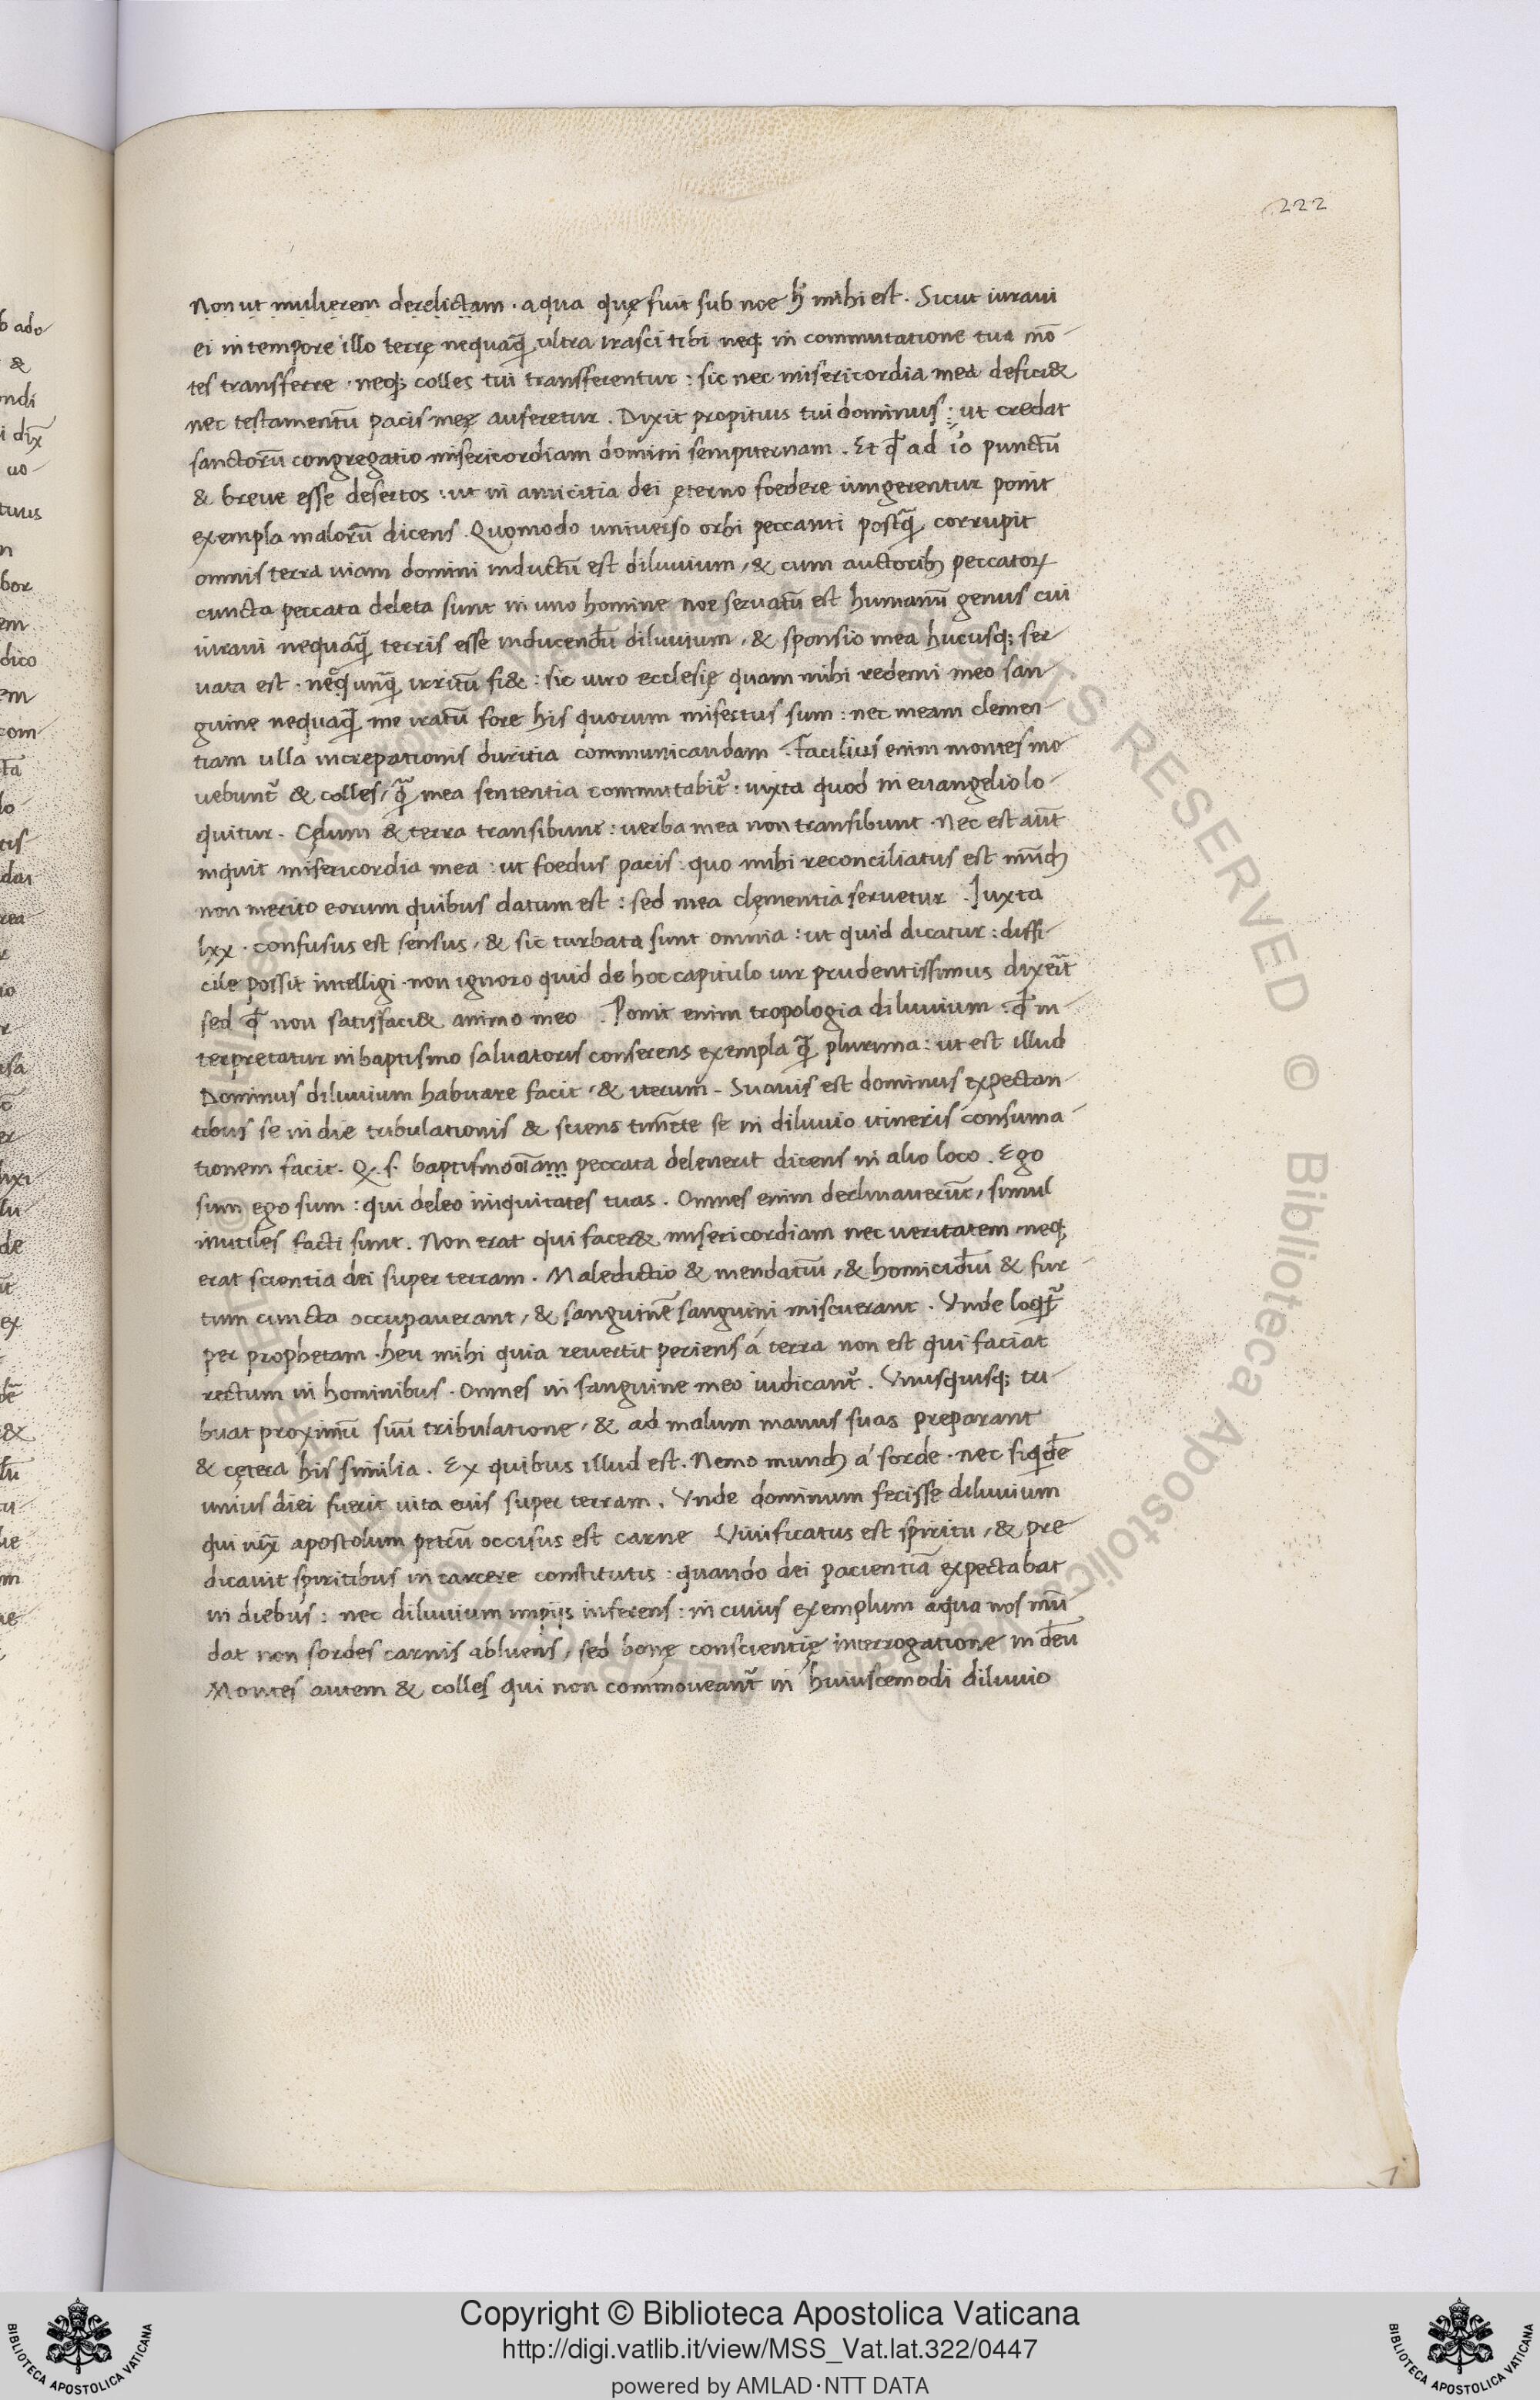 222
Non ut mulierem derelictam . aqua quę fuit sub noe h̊ mihi est . Sicut iuraui
ei in tempore illo terrę nequaq̃ ultra irasci tibi neq; in commutatione tua mō
tes transferre . neq; colles tui transferentur : sic nec misericordia mea defici&
nec testamentū pacis meę auferetur . Dixit propitius tui dominus : ut credat
sanctorū congregatio misericordiam domini sempiternam . Et qđ ad ıo punctū
& breue esse desertos : ut in amicitia dei ęterno foedere iungerentur ponit
exempla malorū dicens . Quomodo uniuerso orbi peccanti postq̃ corrupit
omnis terra uiam domini inductū est diluuium , & cum auctorib; peccatoꝝ
cuncta peccata deleta sunt in uno homine noe seruatū est humanū genus cui
iuraui nequaq̃ terris esse inducendū diluuium , & sponsio mea hucusq; ser
uata est . neq̃ unq̃ irritū fi& : sic iuro ecclesię quam mihi redemi meo san
guine nequaq̃ me iratū fore his quorum misertus sum : nec meam clemen
tiam ulla increpationis duritia communicandam . Facilius enim montes mo
uebunt᷑ & colles , q̃ mea sententia commutabit᷑ : iuxta quod in euangelio lo
quitur . Cęlum & terra transibunt : uerba mea non transibunt . Nec est aūt
inquit misericordia mea : ut foedus pacis quo mihi reconciliatus est mūd;
non merito eorum quibus datum est : sed mea clęmentia seruetur . Iuxta
lxx . confusus est sensus , & sic turbata sunt omnia : ut quid dicatur : diffi
cile possit intelligi . non ignoro quid de hoc capitulo uir prudentissimus dixerit
sed qđ non satisfaci& animo meo . Ponit enim tropologia diluuium : qđ in
terpretatur in baptismo saluatoris conserens exempla q̃ plurima : ut est illud
Dominus diluuium habitare facit , & iterum . Suauis est dominus expectan
tibus se in die tribulationis & sciens timēte se in diluuio itineris consuma
tionem facit . Q. s. baptismo oīam peccata deleuerit dicens in alio loco . Ego
sum ego sum : qui deleo iniquitates tuas . Omnes enim declinauerūt , simul
inutiles facti sunt . Non erat qui facer& misericordiam nec ueritatem . neq;
erat scientia dei super terram . Maledictio & mendatiū , & homicidiū & fur
tum cuncta occupauerant , & sanguinē sanguini miscuerant . Vnde loqit᷑
per prophetam . heu mihi quia reuertit periens á terra non est qui faciat
rectum in hominibus . Omnes in sanguine meo iudicant᷑ . Vnusquisq; tri
buat proximū suū tribulatione , & ad malum manus suas preparant
& cętera his similia . Ex quibus illud est . Nemo mund; a' sorde . nec siqdē
unius diei fuerit uita eius super terram . Vnde dominum fecisse diluuium
qui iux̄ apostolum petrū occisus est carne Viuificatus est spiritu , & pre
dicauit spiritibus in carcere constitutis : quando dei pacientiā expectabat
in diebus : nec diluuium impijs inferens : in cuius exemplum aqua nos mū
dat non sordes carnis abluens , sed bonę conscientię interrogatione in dēū
Montes autem & colles qui non commoueant᷑ in huiuscemodi diluuio
Copyright © Biblioteca Apostolica Vaticana
http://digi.vatlib.it/view/MSS_Vat.lat.322/0447
powered by AMLAD·NTT DATA